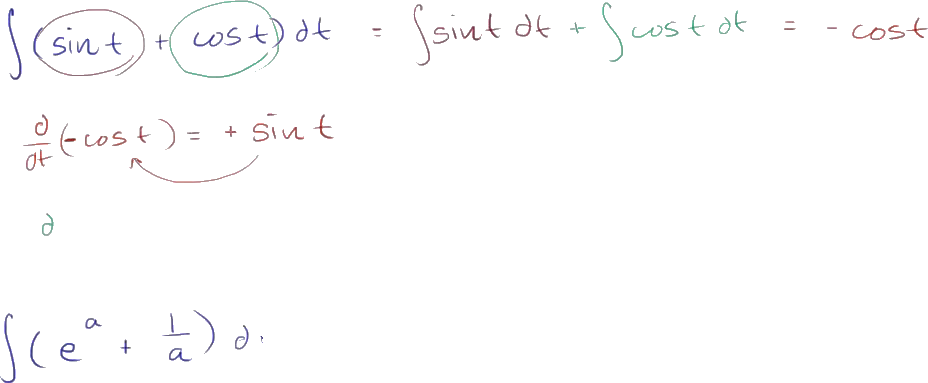 ∫(sin t + cos t) dt = ∫sin t dt + ∫cos t dt = - cos t
d/dt (-cos t) = + sin t
d
∫(e^a + 1/a) d